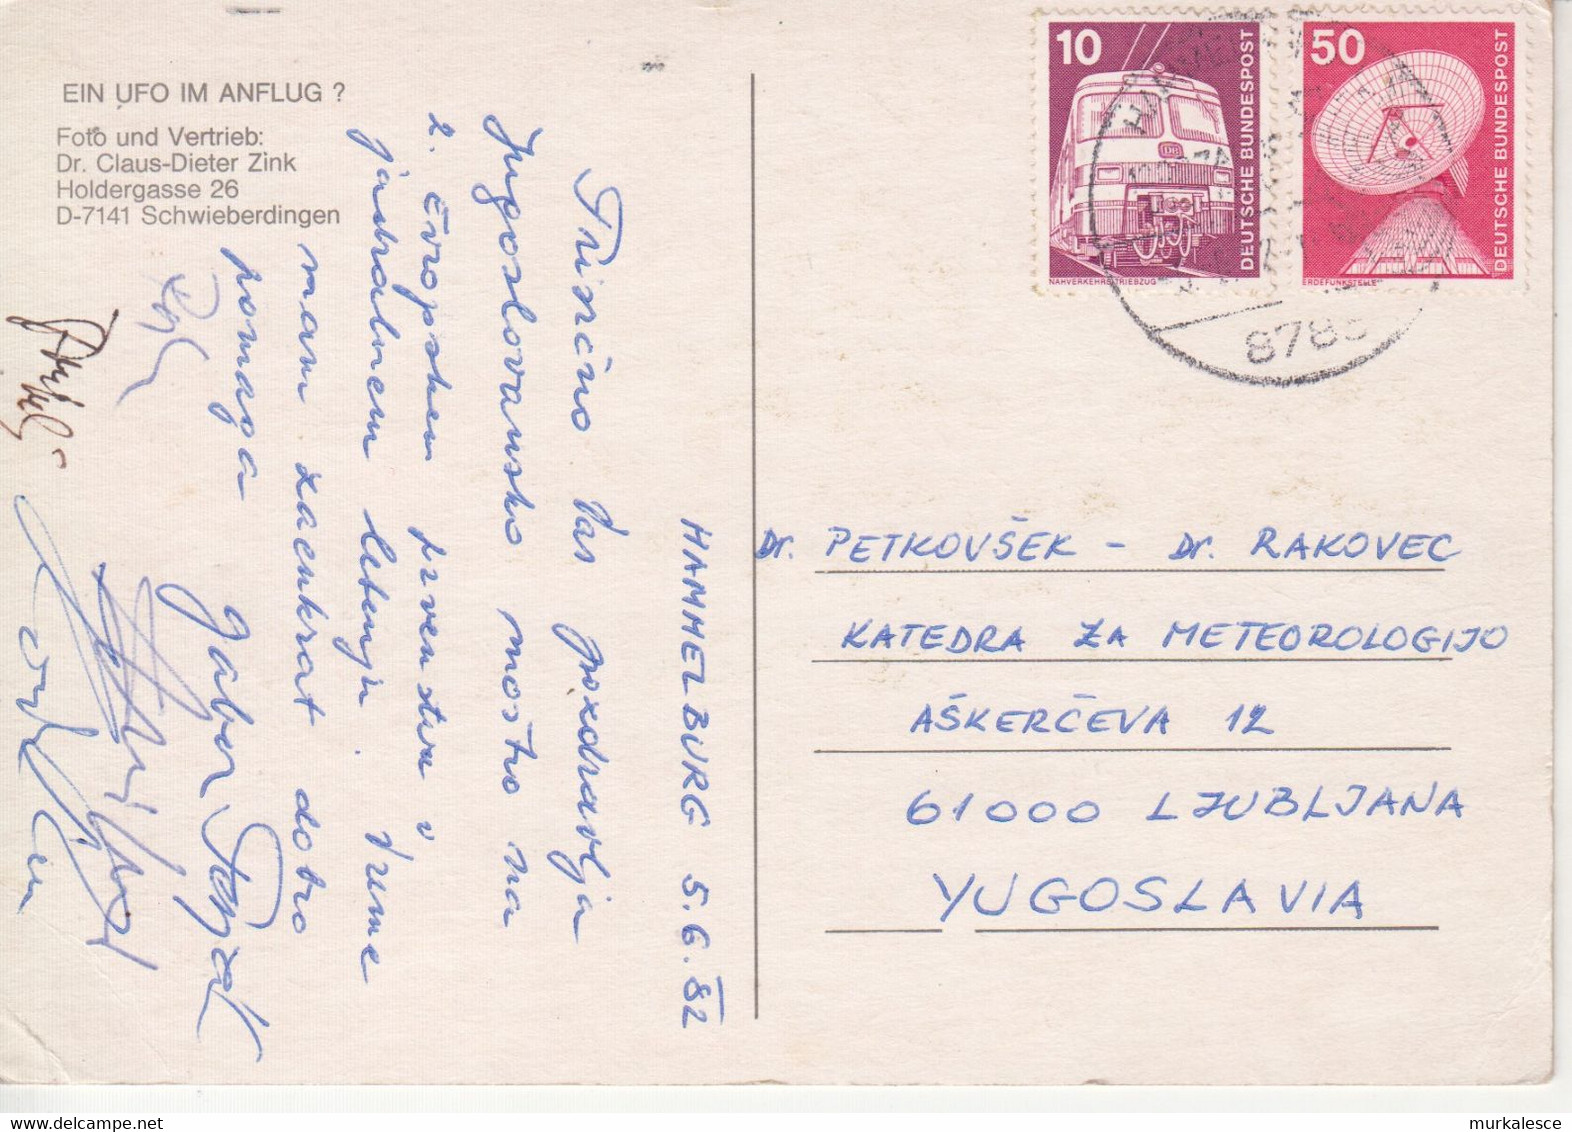 EIN UFO IM ANFLUG ?
Foto und Vertrieb:
Dr. Claus-Dieter Zink
Holdergasse 26
D-7141 Schwieberdingen
HAMMELBURG 5.6.82
Prisrčno Vas pozdravlja
Jugoslovansko moštvo na
2. Evropskem prvenstvu v
jadralnem letenju. Vreme
nam zaenkrat dobro
pomaga
10
DEUTSCHE BUNDESPOST
DB
NAHVERKEHRSTRIEBZUG
50
DEUTSCHE BUNDESPOST
ERDEFUNKSTELLE
8783
Dr. PETKOVŠEK - Dr. RAKOVEC
KATEDRA ZA METEOROLOGIJO
AŠKERČEVA 12
61000 LJUBLJANA
YUGOSLAVIA
murkalesce